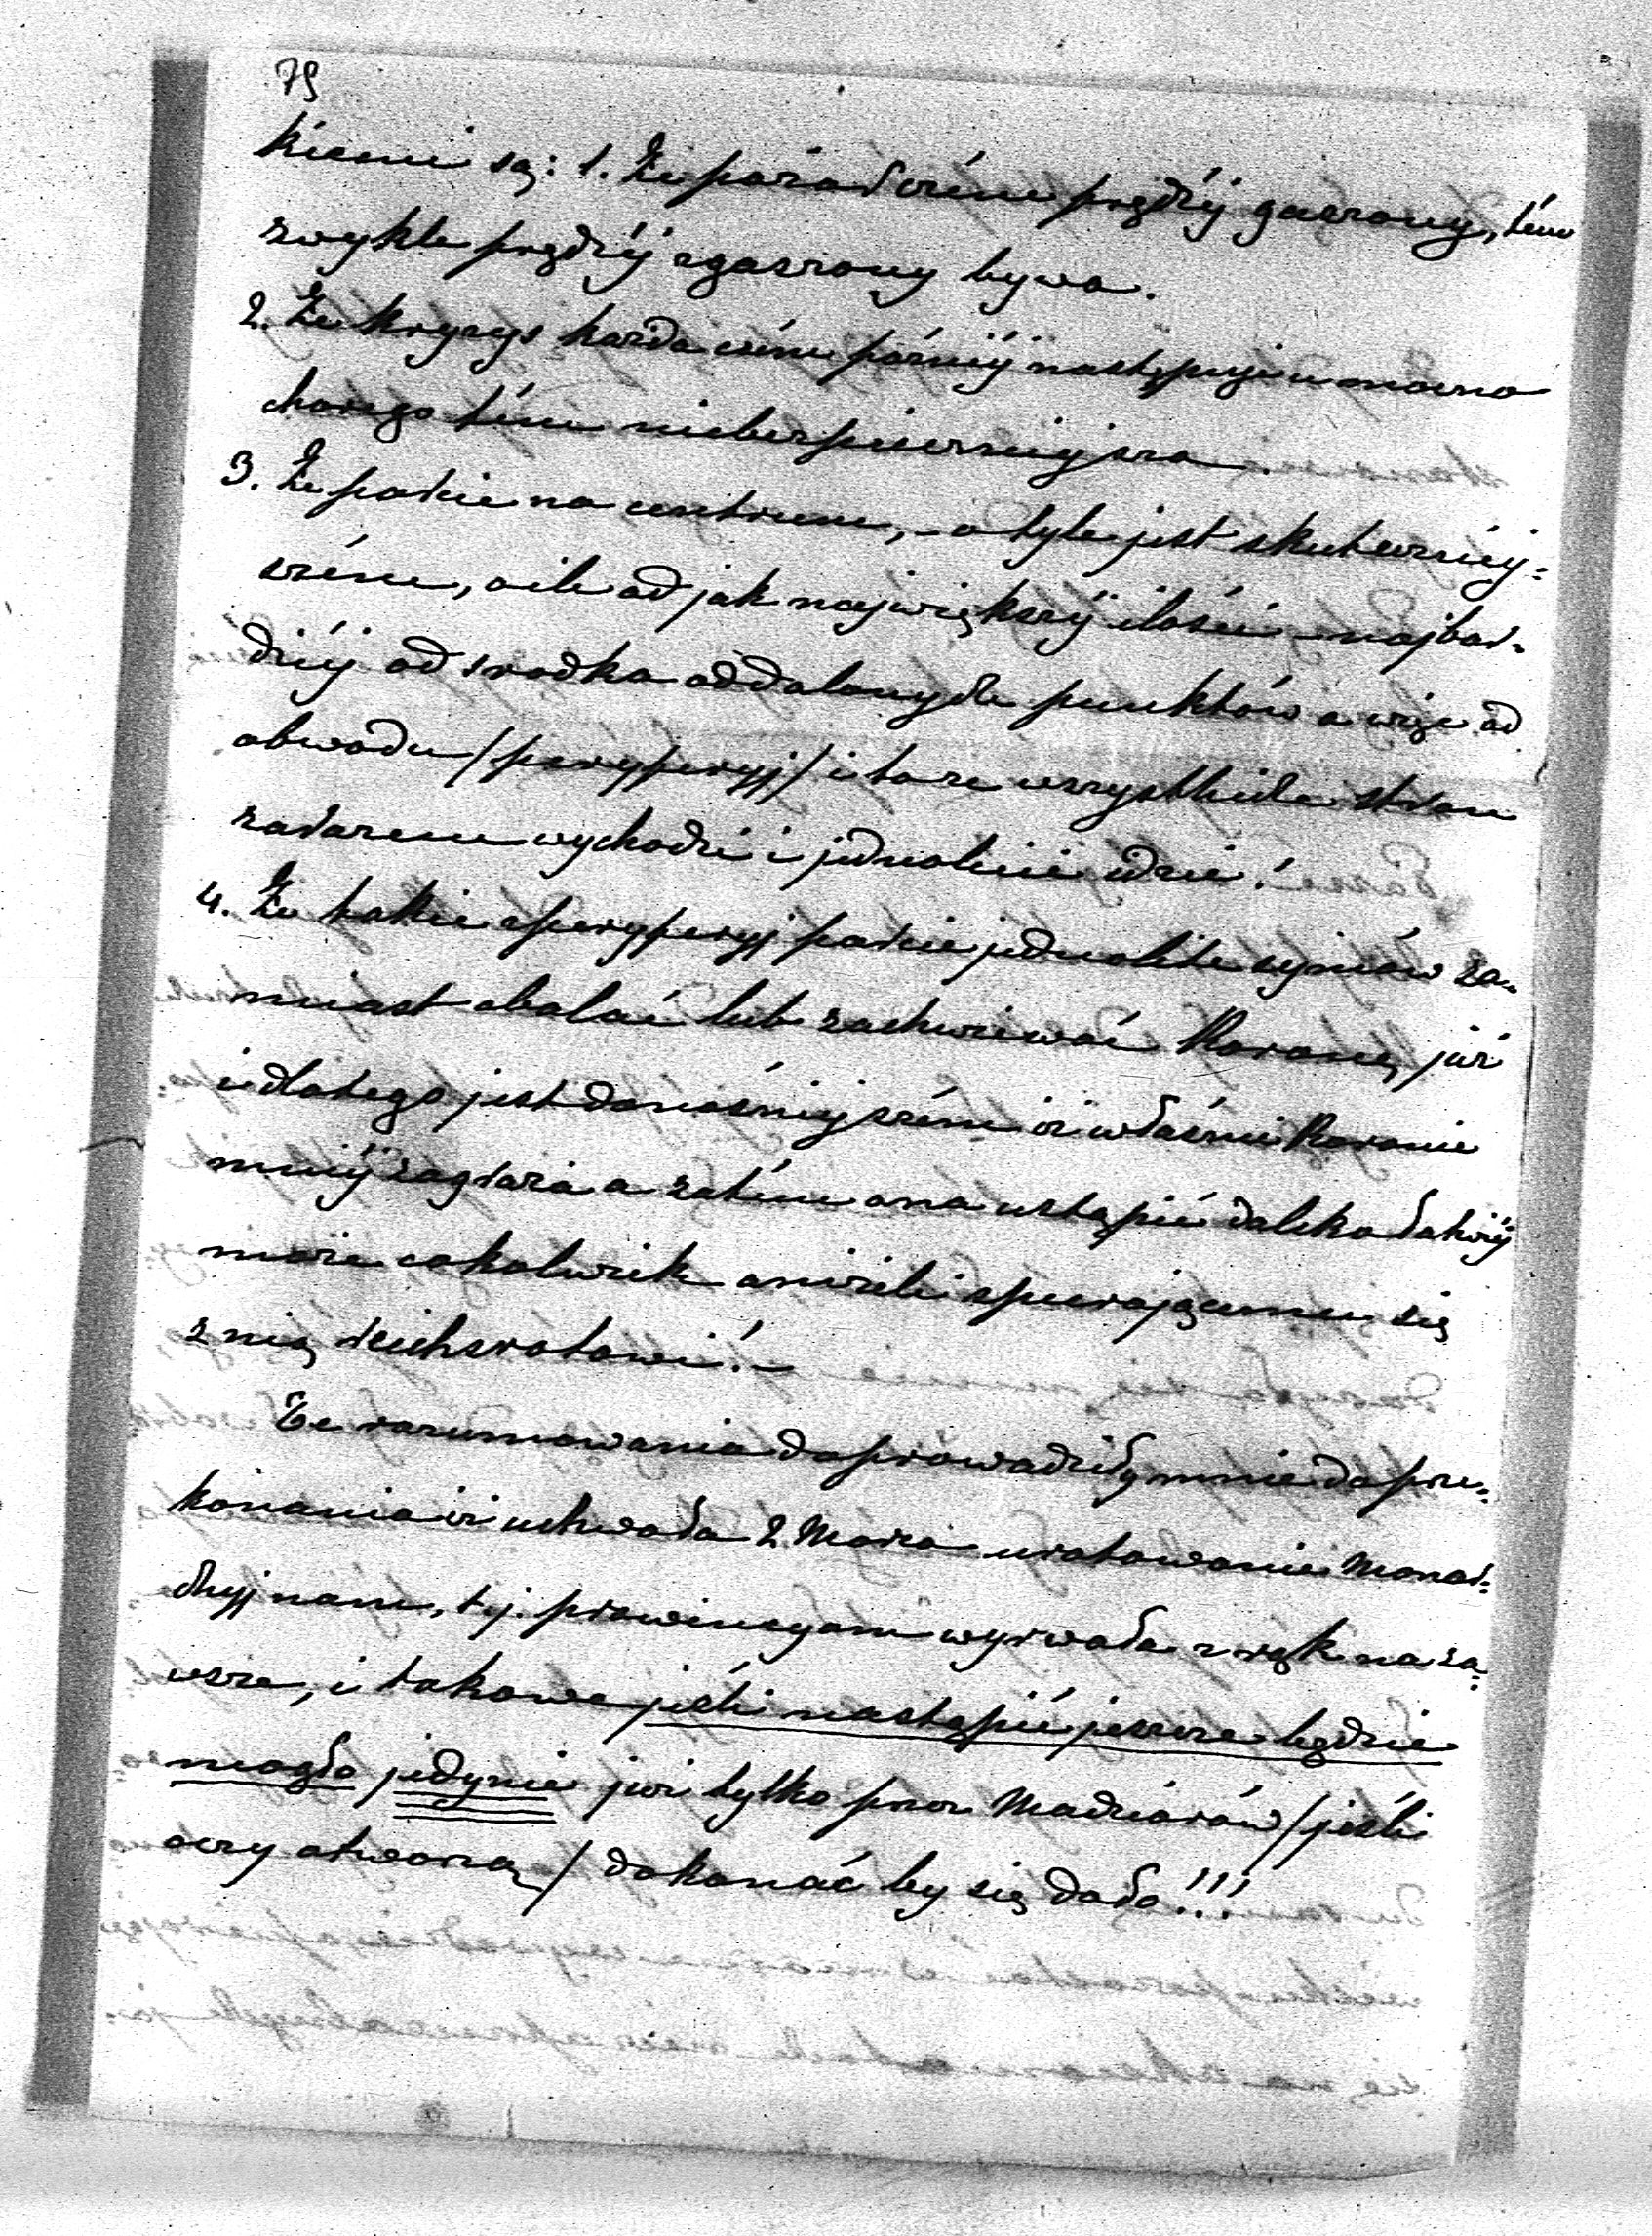 79
kiemi są: 1. Że pożar czém prędzéj gaszony, tém
zwykle prędzéj zgaszony bywa.
2. Że kryzys każda czém późniéj następuje u mocno
chorego tém niebezpieczniejsza.
3. Że parcie na centrum, - o tyle jest skuteczniéj-
szém, o ile od jak największéj ilości najbar-
dziéj od środka oddalonych punktów a więc od
obwodu /peryferyj/ i to ze wszystkich stron
zarazem wychodzi i jednolicie idzie!
4. Że takie z peryferyj parcie jednolite synów za-
miast obalać lub zachwiewać Koronę, już
i dlatego jest donośniejszém iż właśnie Koronie
mniéj zagraża a zatém ona ustąpić daleko łatwiéj
może cokolwiek aniżeli spierającemu się
z nią Reichsratowi! -
Te rozumowania doprowadziły mnie do prze-
konania iż uchwała 2 Marca uratowanie Monar-
chyj nam, t.j. prowincyom wyrwała z rąk na za-
wsze, i takowe jeśli nastąpić jeszcze będzie
mogło jedynie już tylko przez Madziarów /jeśli
oczy otworzą/ dokonać by się dało!!!